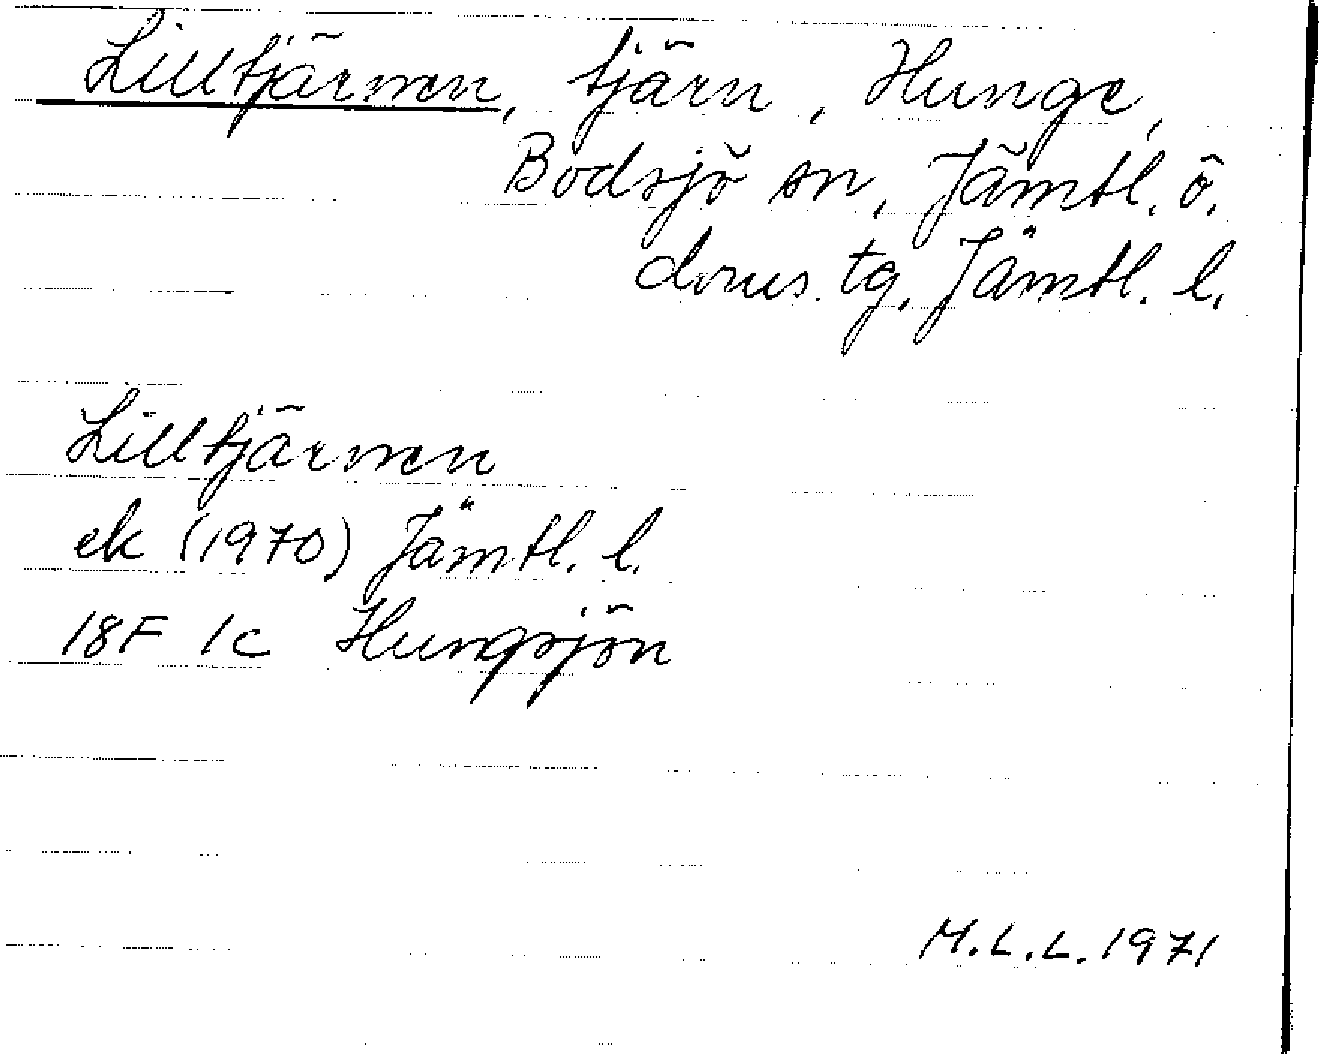 Lilltjärnen, tjärn, Hunge,
Bodsjö sn, Jämtl. ö.
doms. tg, Jämtl. l.
Lilltjärnen
ek (1970) Jämtl. l.
18F 1c Hungsjön
M.L.L. 1971